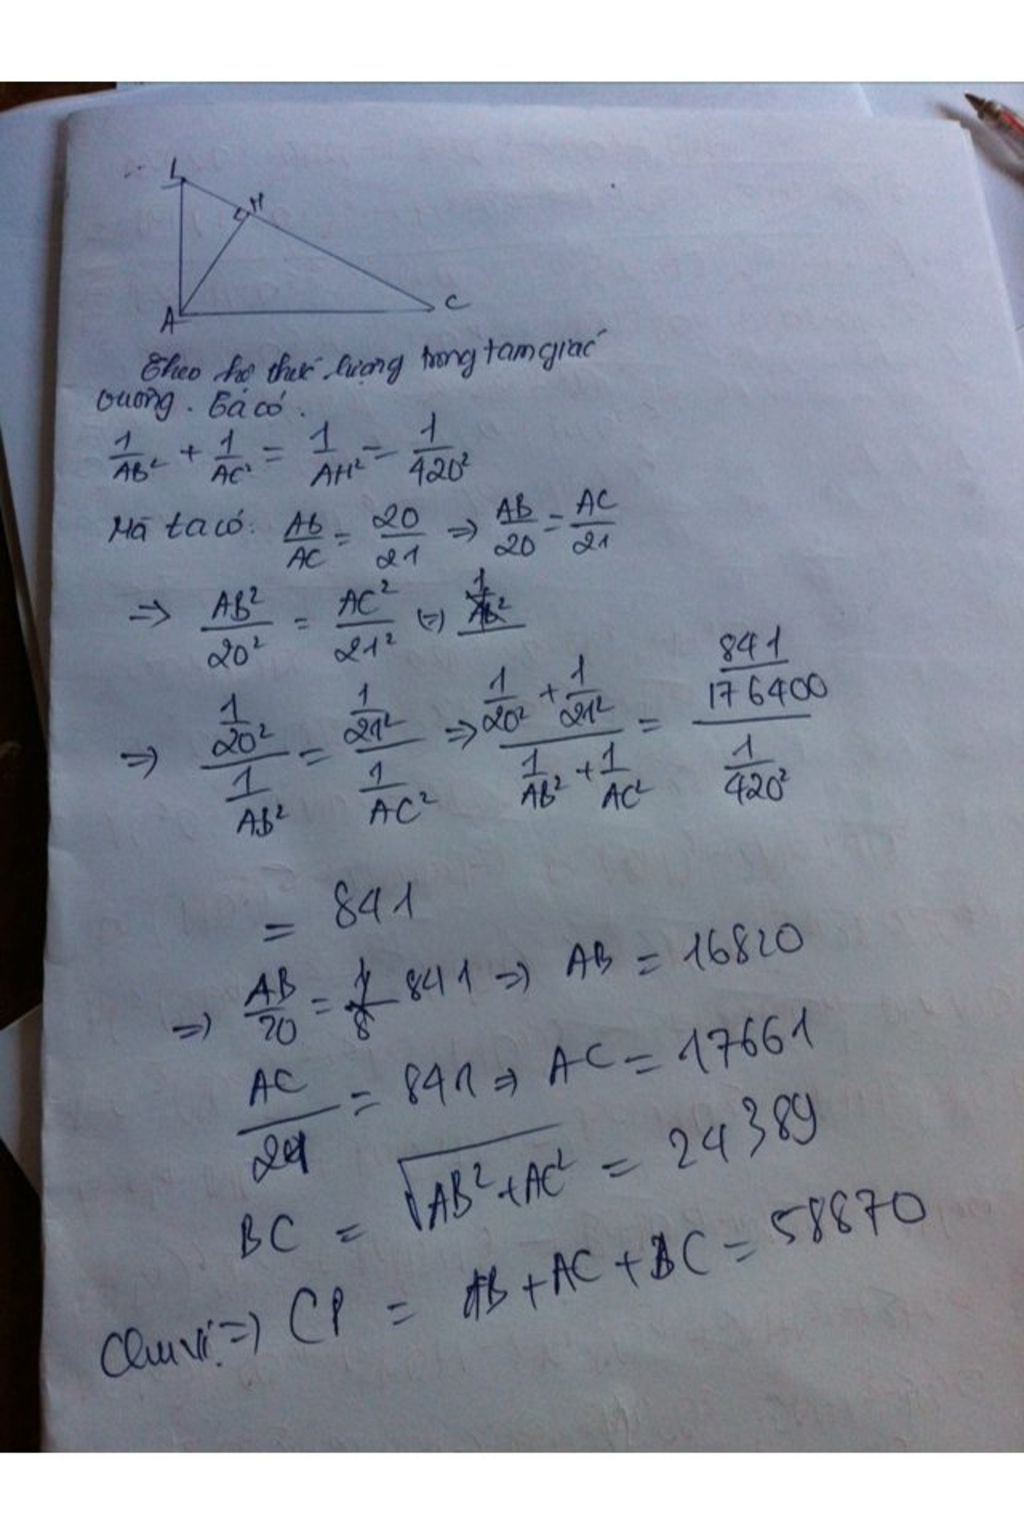 L
H
A
C
Theo hệ thức lượng trong tam giác
vuông. Ta có.
1/AB² + 1/AC² = 1/AH² = 1/420²
Mà ta có: AB/AC = 20/21 ⇒ AB/20 = AC/21
⇒ AB²/20² = AC²/21²
⇒ (1/20²)/(1/AB²) = (1/21²)/(1/AC²) ⇒ (1/20² + 1/21²)/(1/AB² + 1/AC²) = (841/176400)/(1/420²)
= 841
⇒ AB/20 = 841 ⇒ AB = 16820
AC/21 = 841 ⇒ AC = 17661
BC = √(AB² + AC²) = 24389
Chu vi: ⇒ CP = AB + AC + BC = 58870